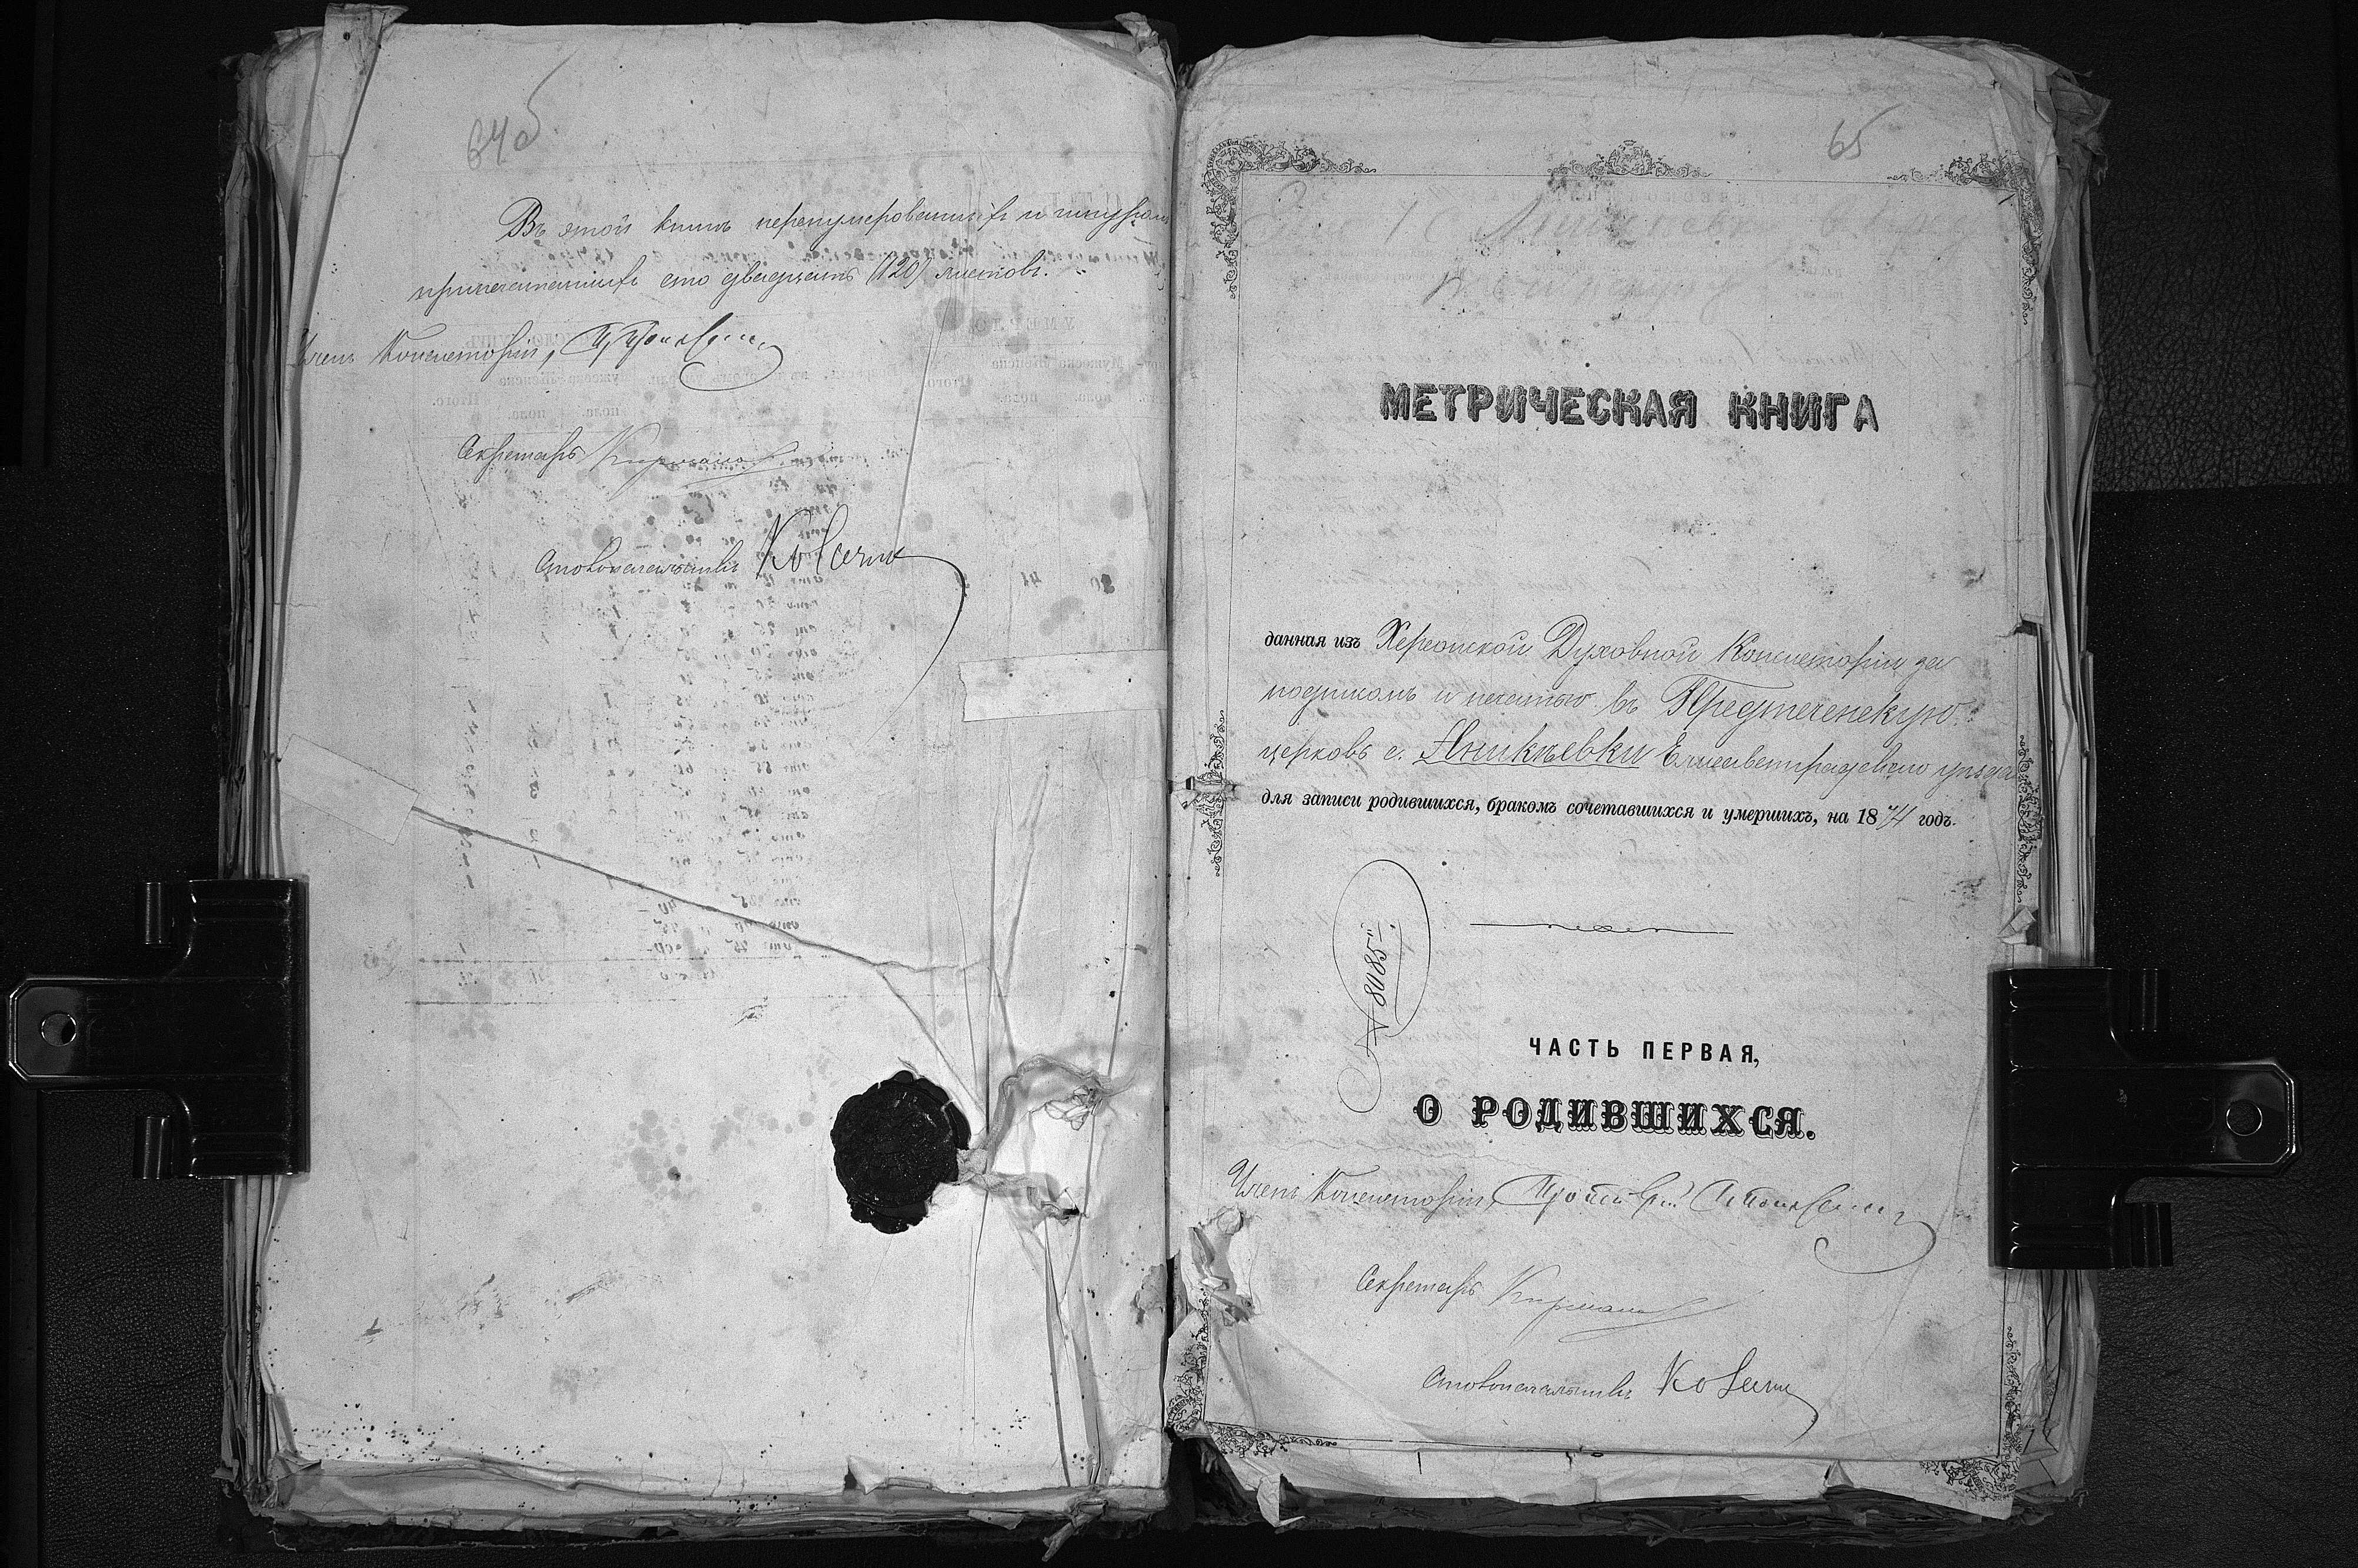 64об
Въ этой книгѣ перенумерованныхъ и шнуромъ
припечатанныхъ сто двадцать (120) листовъ.
Членъ Консисторіи,
Секретарь
Столоначальникъ
65
МЕТРИЧЕСКАЯ КНИГА
данная изъ Херсонской Духовной Консисторіи за
подписомъ и печатью въ Предтеченскую
церковь с. Аникѣевки Елисаветградскаго уѣзда
для записи родившихся, бракомъ сочетавшихся и умершихъ, на 1874 годъ.
№ 8085
ЧАСТЬ ПЕРВАЯ,
О РОДИВШИХСЯ.
Членъ Консисторіи, Протоіерей
Секретарь
Столоначальникъ